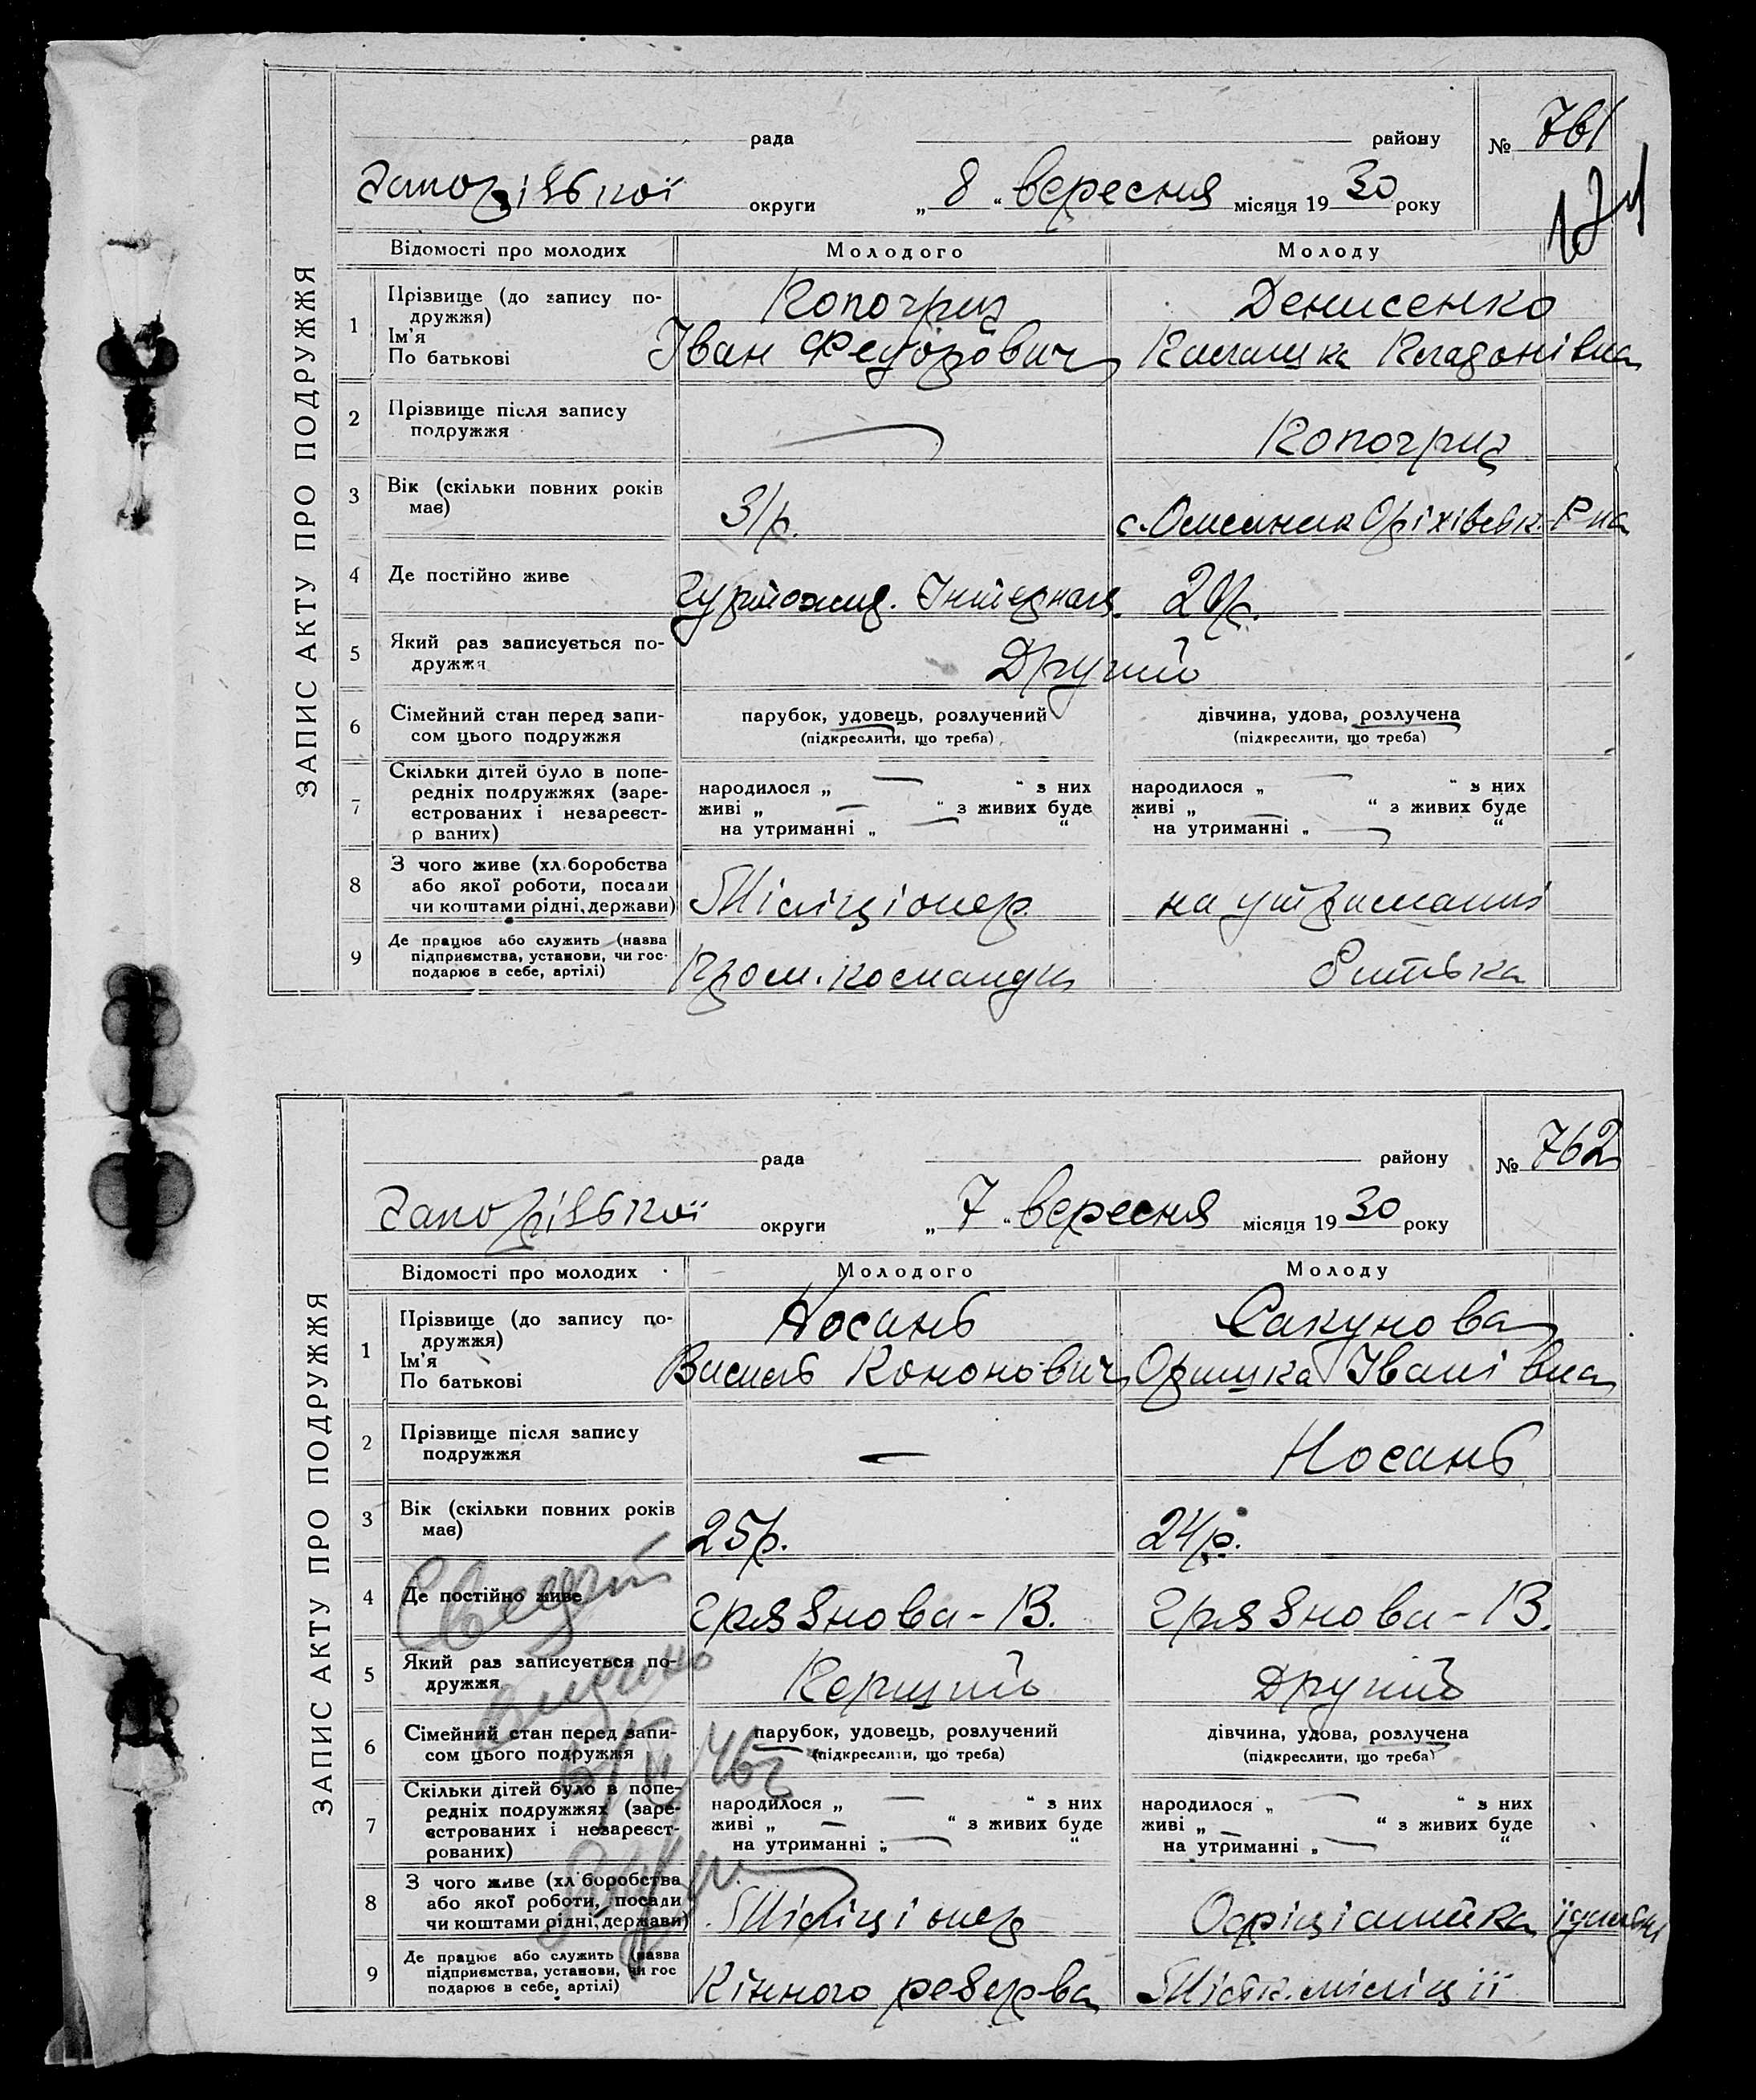 ЗАПИС АКТУ ПРО ПОДРУЖЖЯ
рада
району
№ 761
171
Запорізької округи
„8“ вересня місяця 1930 року
Відомості про молодих
Молодого
Молоду
1
Прізвище (до запису по-
дружжя)
Ім'я
По батькові
Іван Федорович
Денисенко
2
Прізвище після запису
подружжя
3
Вік (скільки повних років
має)
31р.
Оріхівськ. Р-на
4
Де постійно живе
гуртожит. Інтернац.
5
Який раз записується по-
дружжя
Другий
6
Сімейний стан перед запи-
сом цього подружжя
парубок, удовець, розлучений
(підкреслити, що треба)
дівчина, удова, розлучена
(підкреслити, що треба)
7
Скільки дітей було в попе-
редніх подружжях (заре-
єстрованих і незареєст-
р ваних)
народилося „ — “ з них
живі „ — “ з живих буде
на утриманні „ — “
народилося „ — “ з них
живі „ — “ з живих буде
на утриманні „ — “
8
З чого живе (хл боробства
або якої роботи, посади
чи коштами рідні, держави)
Міліціонер
на утриманні
9
Де працює або служить (назва
підприємства, установи, чи гос-
подарює в себе, артілі)
Пром. команди
ЗАПИС АКТУ ПРО ПОДРУЖЖЯ
рада
району
№ 762
Запорізької округи
„7“ вересня місяця 1930 року
Відомості про молодих
Молодого
Молоду
1
Прізвище (до запису по-
дружжя)
Ім'я
По батькові
Носань
Василь Кононович
Сакунова
Оришка Іванівна
2
Прізвище після запису
подружжя
—
Носань
3
Вік (скільки повних років
має)
25р.
24р.
4
Де постійно живе
Грязнова-13.
Грязнова-13.
5
Який раз записується по-
дружжя
Перший
Другий
6
Сімейний стан перед запи-
сом цього подружжя
парубок, удовець, розлучений
(підкреслити, що треба)
дівчина, удова, розлучена
(підкреслити, що треба)
7
Скільки дітей було в попе-
редніх подружжях (заре-
єстрованих і незареєст-
рованих)
народилося „ — “ з них
живі „ — “ з живих буде
на утриманні „ — “
народилося „ — “ з них
живі „ — “ з живих буде
на утриманні „ — “
8
З чого живе (хл боробства
або якої роботи, посади
чи коштами рідні, держави)
Міліціонер
Офіціантка їдальні
9
Де працює або служить (назва
підприємства, установи, чи гос
подарює в себе, артілі)
Кінного резерва
Міськ. міліції